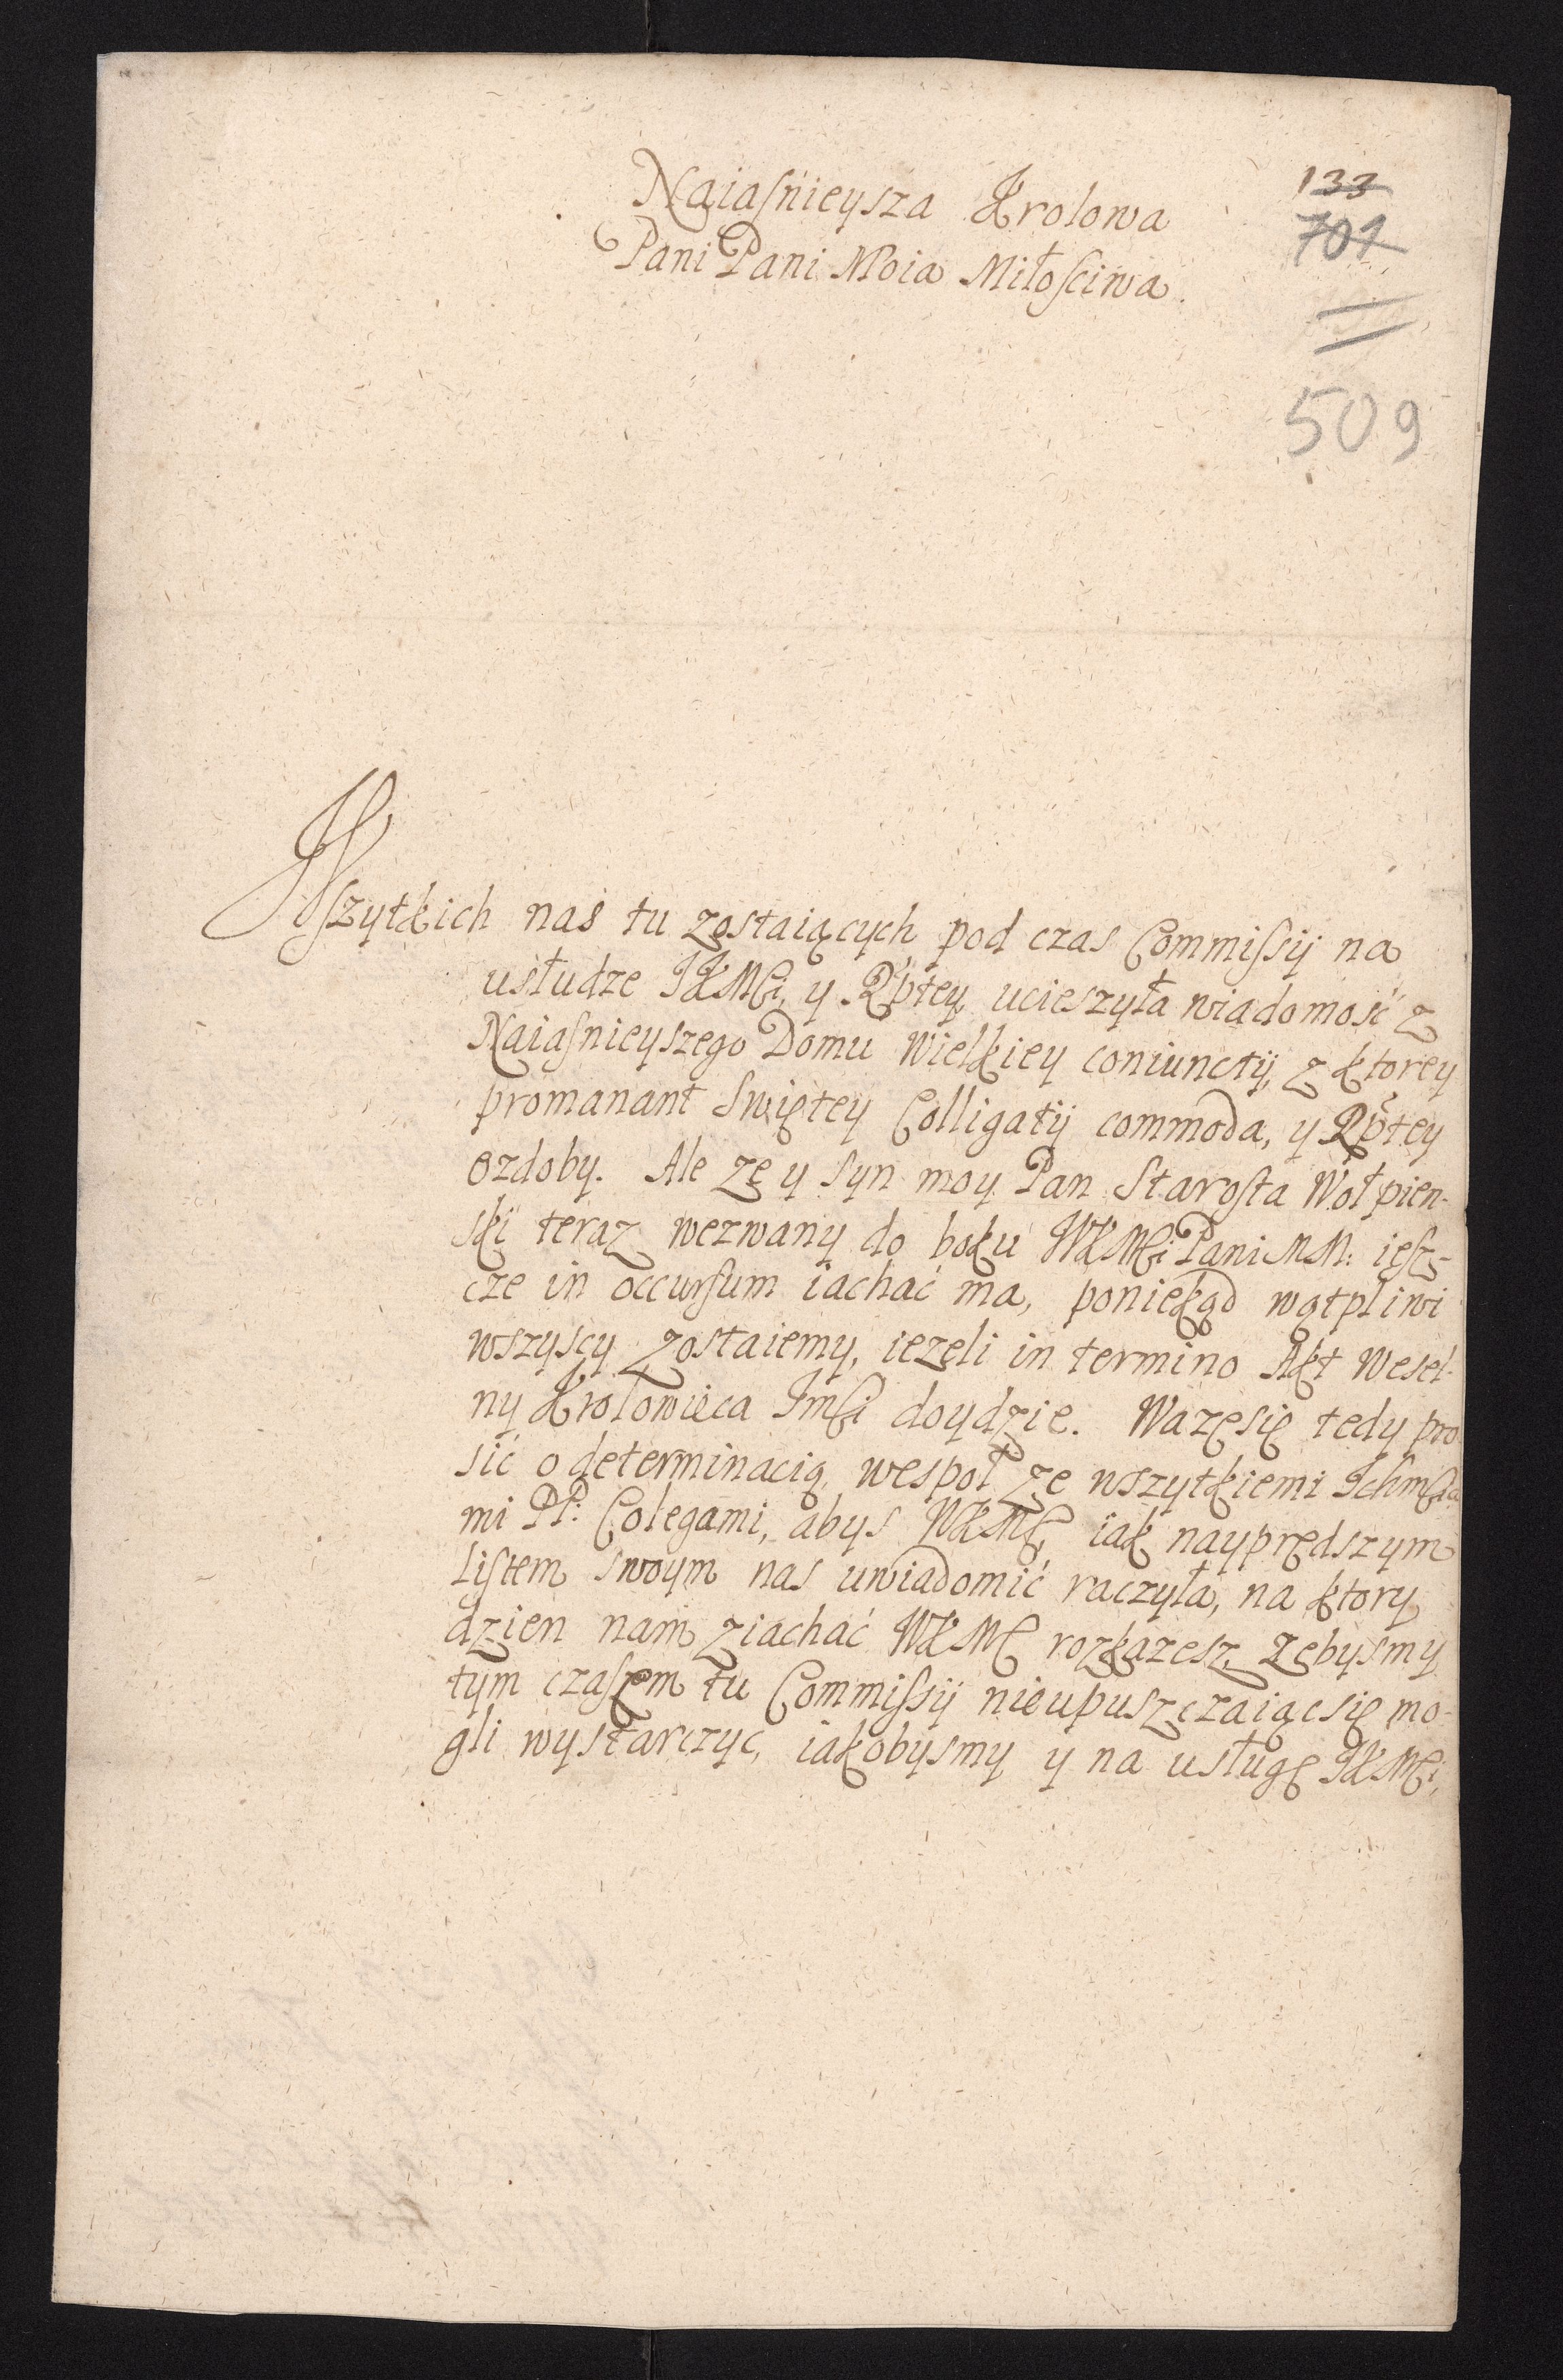 Naiaśnieysza Krolowa
Pani Pani Moia Miłościwa.
133
701
509
Wszytkich nas tu zostaiących pod czas Commissÿ na
usłudze JKMCi, y Rptey, ucieszyła wiadomość z
Naiaśnieyszego Domu Wielkiey coniunctÿ, z ktorey
promanant Swiętey Colligatÿ commoda, y Rptey
ozdoby. Ale zę y syn moy Pan Starosta Wołpien-
ski teraz wezwany do boku WKMCi Pani MM: iesz-
cze in occursum iachać ma, poniekąd wątpliwi
wszyscy zostaiemy, iezeli in termino Akt Wesel-
ny Krolowica Jmći doydzie. Wazęsię tedy pro
sić o determinacią, wespoł ze wszytkiemi Ichmćia
mi PP: Colegami, abys WKMC, iak nayprędszym
listem swoym nas uwiadomić raczyła, na ktory
dzien nam ziachać WKMC rozkazesz, zębysmy
tym czasem tu Commissÿ nieupuszczaiącsię mo-
gli wystarczyc, iakobysmy y na usługę JKMCi,